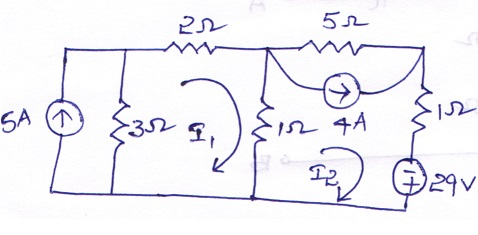 2Ω 5Ω
5A 3Ω I₁ 1Ω 4A 1Ω
I₂ 29V